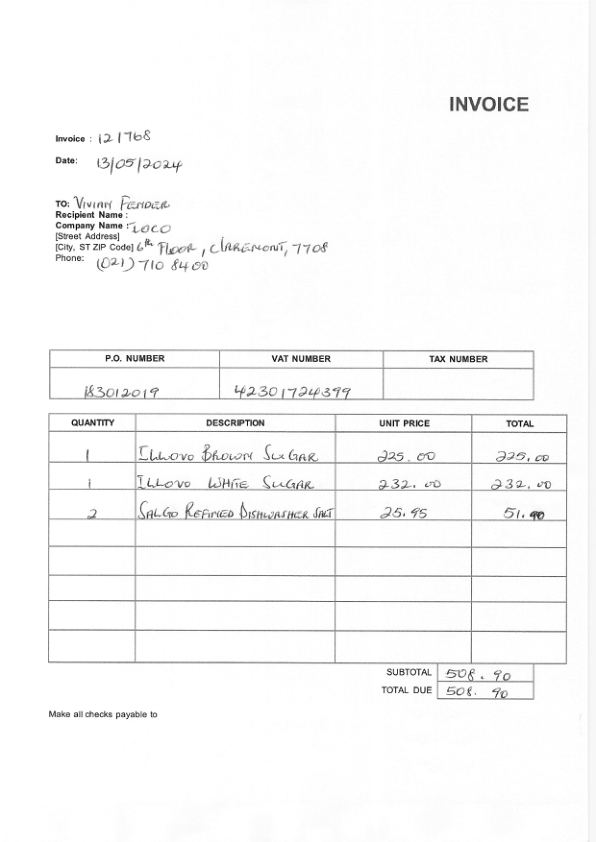 INVOICE
Invoice : 121768
Date: 13/05/2024
TO: VIVIAN FENDER
Recipient Name :
Company Name : LOCO
[Street Address]
[City, ST ZIP Code] 6th FLOOR, CLAREMONT, 7708
Phone: (021) 710 8400
P.O. NUMBER VAT NUMBER TAX NUMBER
183012019 42301724399
QUANTITY DESCRIPTION UNIT PRICE TOTAL
1 ILLOVO BROWN SUGAR 225.00 225.00
1 ILLOVO WHITE SUGAR 232.00 232.00
2 SALGO REFINED DISHWASHER SALT 25.95 51.90
SUBTOTAL 508.90
TOTAL DUE 508.90
Make all checks payable to